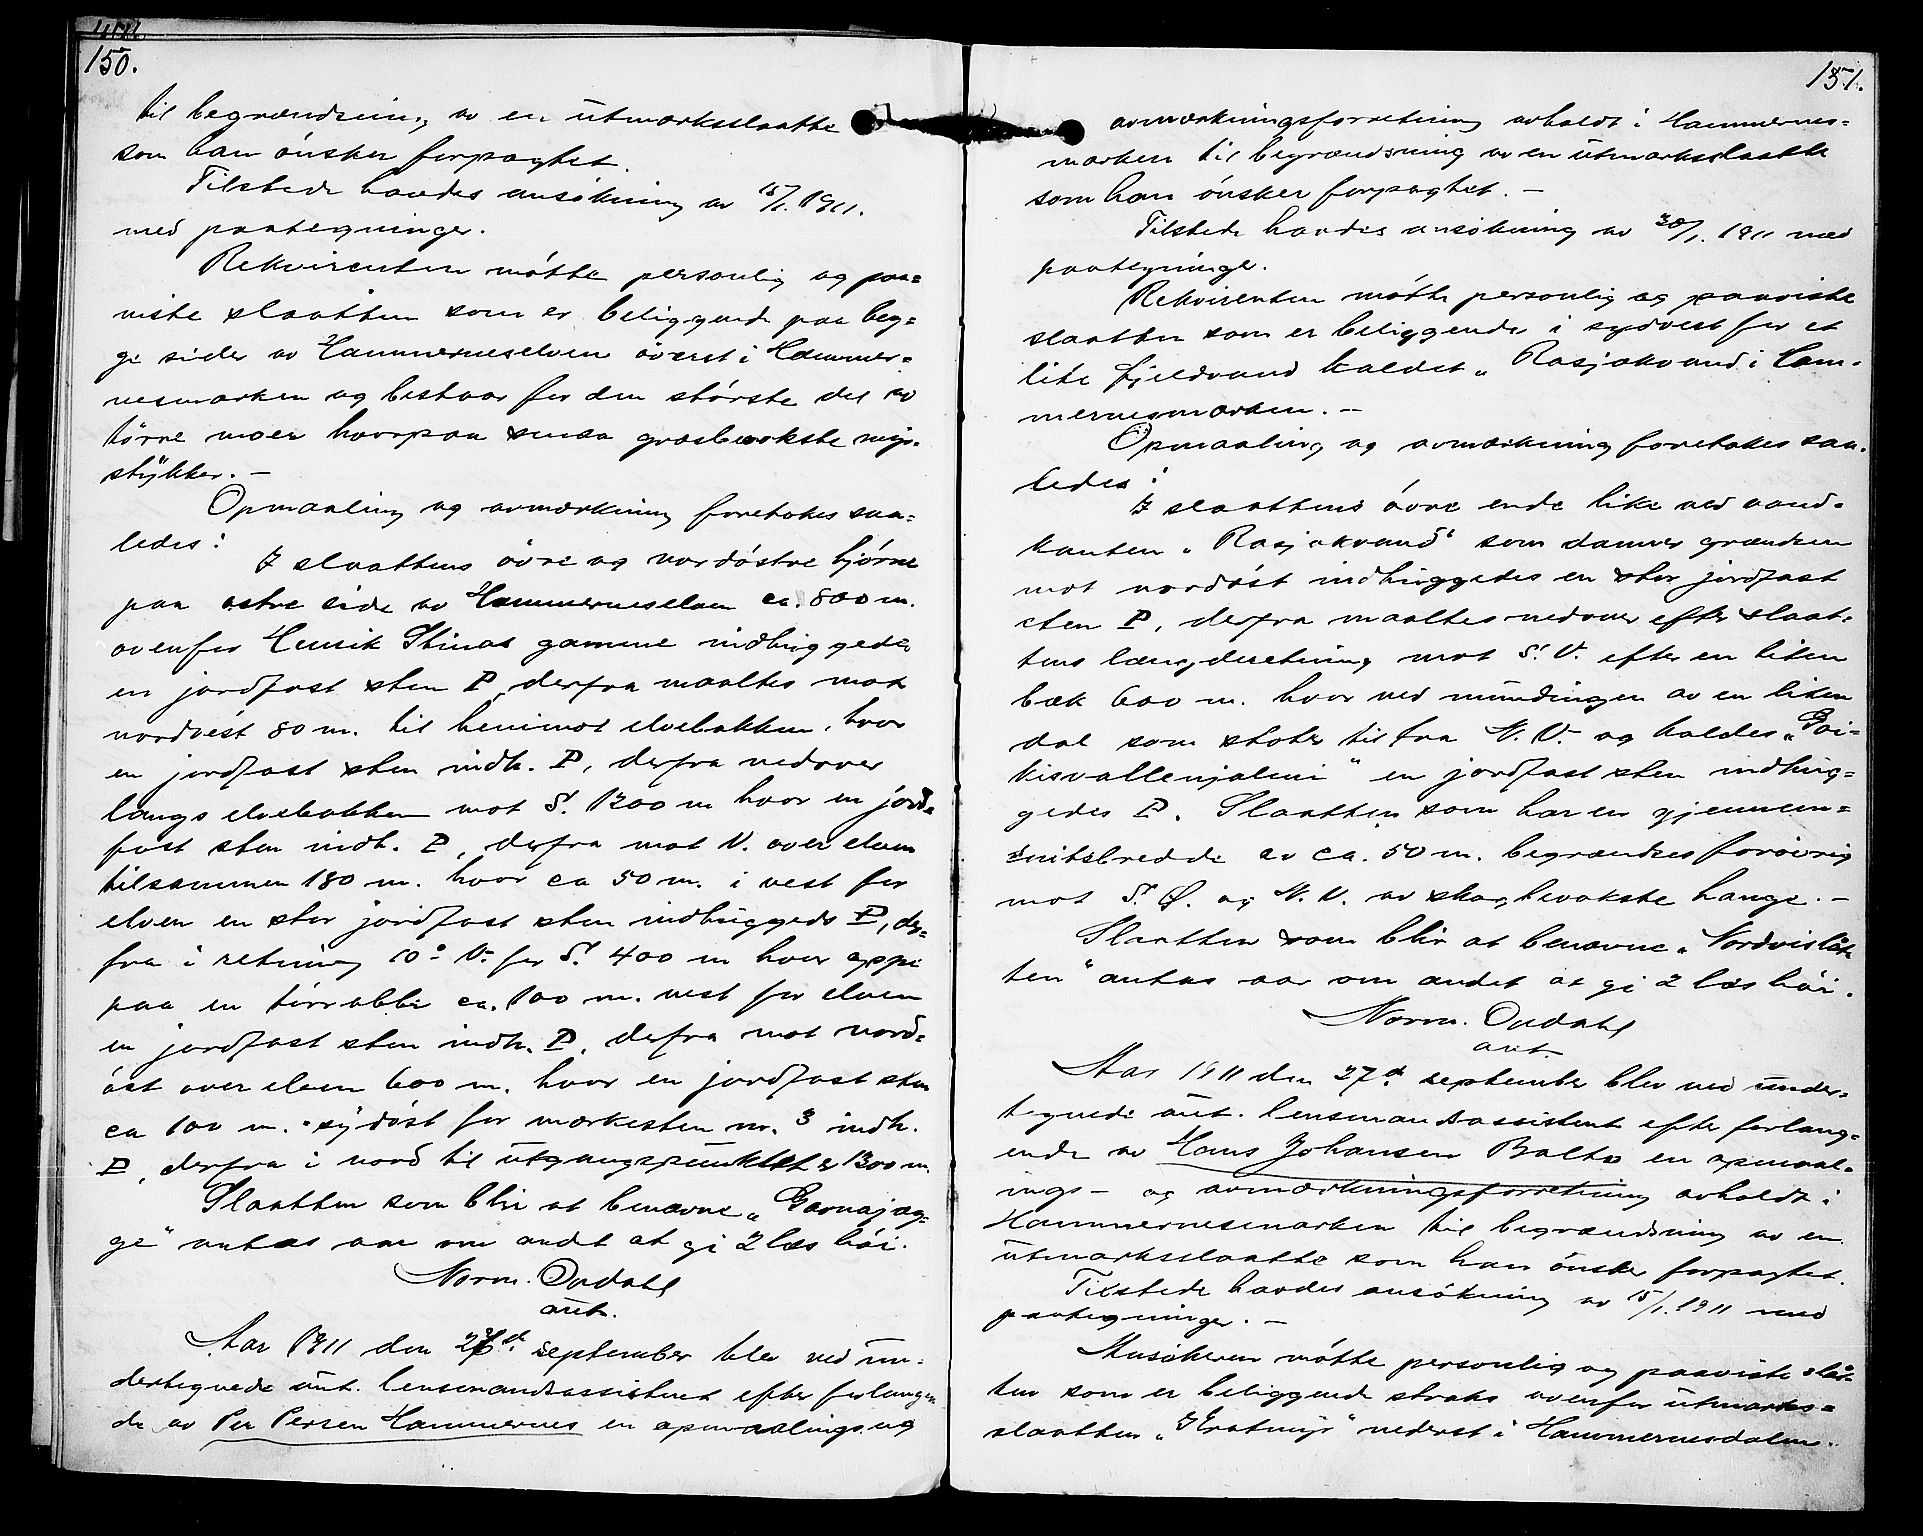 150.
til begrændsning av en utmarksslaatte
som han ønsker forpagtet.
Tilstede havdes ansøkning av 15/1. 1911.
med paategninger.
Rekvirenten møtte personlig og paa=
viste slaatten som er beliggende paa beg=
ge sider av Hammerneselven øverst i Hammer=
nesmarken og bestaar for den største del av
tørre moer hvorpaa smaa græsbevokste myr=
stykker. –
Opmaaling og avmærkning foretokes saa=
ledes:
I slaattens øvre og nordøstre hjørne
paa østre side av Hammerneselven ca. 800 m.
ovenfor Henrik Stinas gamme indhuggedes
en jordfast sten P, derfra maaltes mot
nordvest 80 m. til henimot elvebakken, hvor
en jordfast sten indh. P, derfra nedover
langs elvebakken mot S. 1300 m hvor en jord=
fast sten indh. P, derfra mot V. over elven
tilsammen 180 m. hvor ca 50 m. i vest for
elven en stor jordfast sten indhuggeds P, der=
fra i retning 10° V. for S. 400 m hvor oppe
paa en tørrabbe ca. 100 m. vest for elven
en jordfast sten indh. P, derfra mot nord=
øst over elven 600 m. hvor en jordfast sten
ca 100 m. sydøst for merkesten nr. 3 indh.
P, derfra i nord til utgangspunktet 1300 m.
Slaatten som blir at benævne „Gavnajæg=
ge" antas aar om andet at gi 2 læs høi.
Norm. Opdahl
aut.
Aar 1911 den 26d. september blev ved un=
dertegnede aut. lensmandsassistent efter forlangen
de av Per Persen Hammernes en opmaalings og
151.
avmærkningsforretning avholdt i Hammernes=
marken til begrændsning av en utmarksslaatte
som han ønsker forpagtet. –
Tilstede havdes ansøkning av 30/1. 1911 med
paategninge.
Rekvirenten møtte personlig og paaviste
slaatten som er beliggende i sydvest for et
lite fjeldvand kaldet „Rasjokvand i Ham=
mernesmarken. –
Opmaaling og avmærkning foretokes saa=
ledes:
I slaattens øvre ende like ved vand=
kanten „Rasjokvand" som danner grændsen
mot nordøst indhuggedes en stor jordfast
sten P, derfra maaltes nedover efter slaat=
tens længderetning mot S. V. efter en liten
bæk 600 m. hvor ved mundingen av en liten
dal som støter til fra N. V. og kaldes „Goi=
kisvallenjalmi" en jordfast sten indhug=
gedes P. Slaatten som har en gjennem=
snitsbredde av ca. 50 m. begrændses forøvrig
mot S. Ø. og N. V. av skogbevokste hange. –
Slaatten som blir at benævne „Nordvislåt
ten" antas aar om andet at gi 2 læs høi.
Norm. Opdahl
aut.
Aar 1911 den 27d. september blev ved under=
tegnede aut. lensmandsassistent efter forlang=
ende av Hans Johansen Balto en opmaal=
ings– og avmærkningsforretning avholdt i
Hammernesmarken til begrændsning av en
utmarksslaatte som han ønsker forpagtet.
Tilstede havdes ansøkning av 15/1. 1911 med
paategninger. –
Ansøkeren møtte personlig og paaviste slåt=
ten som er beliggende straks ovenfor utmarks=
slaatten „Kratmyr" nederst i Hammernesdalen.